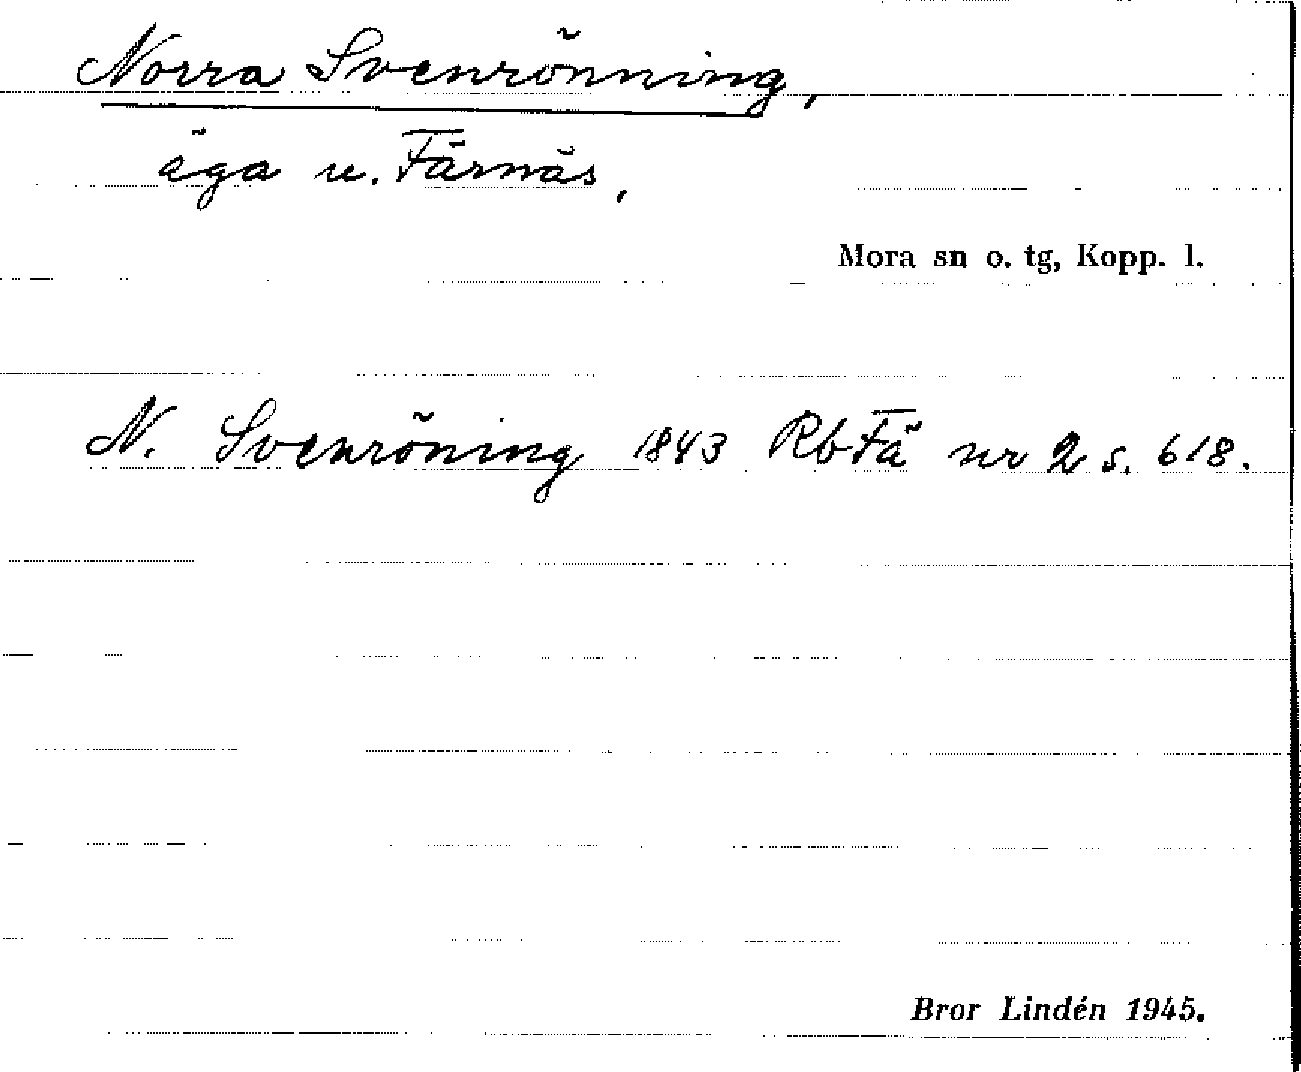 Norra Svenrönning,
äga u. Färnäs,
Mora sn o. tg, Kopp. l.
N. Svenröning 1843 RbFä nr 2 s. 618.
Bror Lindén 1945.